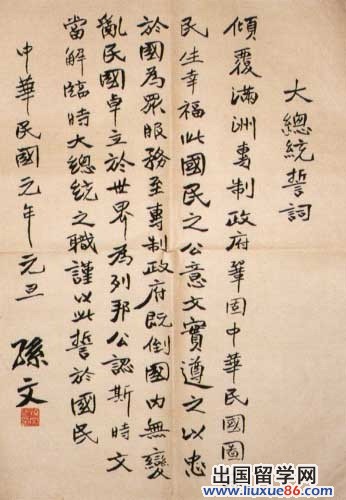 大總統誓詞
傾覆滿洲專制政府鞏固中華民國圖
民生幸福此國民之公意文實遵之以忠
於國為眾服務至專制政府既倒國內無變
亂民國卓立於世界為列邦公認斯時文
當解臨時大總統之職謹以此誓於國民
中華民國元年元旦
孫文
出国留学网
www.liuxue86.com